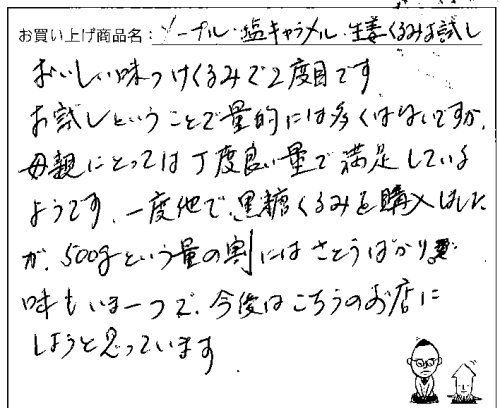 お買い上げ商品名：メープル・塩キャラメル・生姜くるみお試し
おいしい味つけくるみで2度目です
お試しということで量的には多くはないですが、
母親にとっては丁度良い量で満足している
ようです。一度他で、黒糖くるみを購入しました
が、500gという量の割にはさとうばかり
味もいま一つで、今後はこちらのお店に
しようと思っています